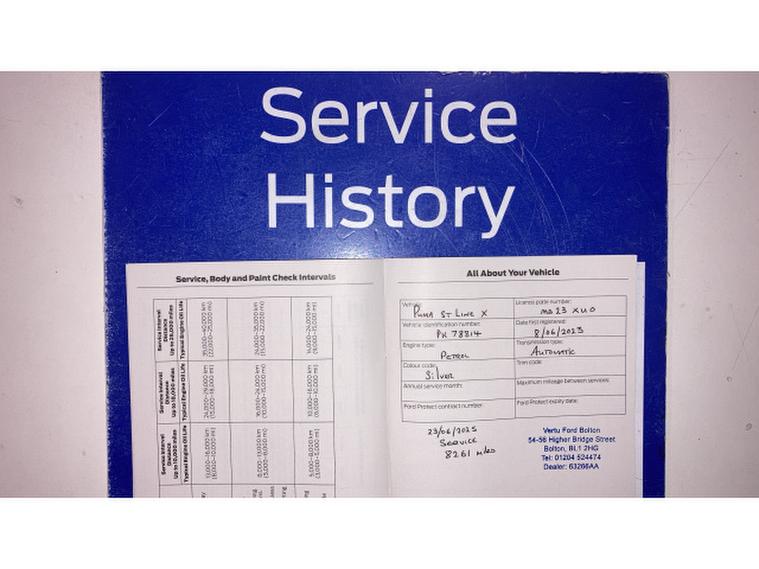 Service
History
Service, Body and Paint Check Intervals
Service Interval
Distance
Up to 25,000 miles
Typical Engine Oil Life
(22,000-25,000 mi)
24,000-35,000 km
(15,000-22,000 mi)
14,000-24,000 km
(9,000-15,000 mi)
Service Interval
Distance
Up to 18,000 miles
Typical Engine Oil Life
(15,000-18,000 mi)
16,000-24,000 km
(10,000-15,000 mi)
10,000-16,000 km
(6,000-10,000 mi)
Service Interval
Distance
Up to 10,000 miles
Typical Engine Oil Life
(8,000-10,000 mi)
8,000-13,000 km
(5,000-8,000 mi)
5,000-8,000 km
(3,000-5,000 mi)
All About Your Vehicle
Vehicle:
PUMA ST LINE X
License plate number:
MD23 XUO
Vehicle identification number:
PK 78814
Date first registered:
8/06/2023
Engine type:
PETROL
Transmission type:
AUTOMATIC
Colour code:
SILVER
Trim code:
Annual service month:
Maximum mileage between services:
Ford Protect contract number:
Ford Protect expiry date:
23/06/2025
SERVICE
8261 MILES
Vertu Ford Bolton
54-56 Higher Bridge Street
Bolton, BL1 2HG
Tel: 01204 524474
Dealer: 63266AA